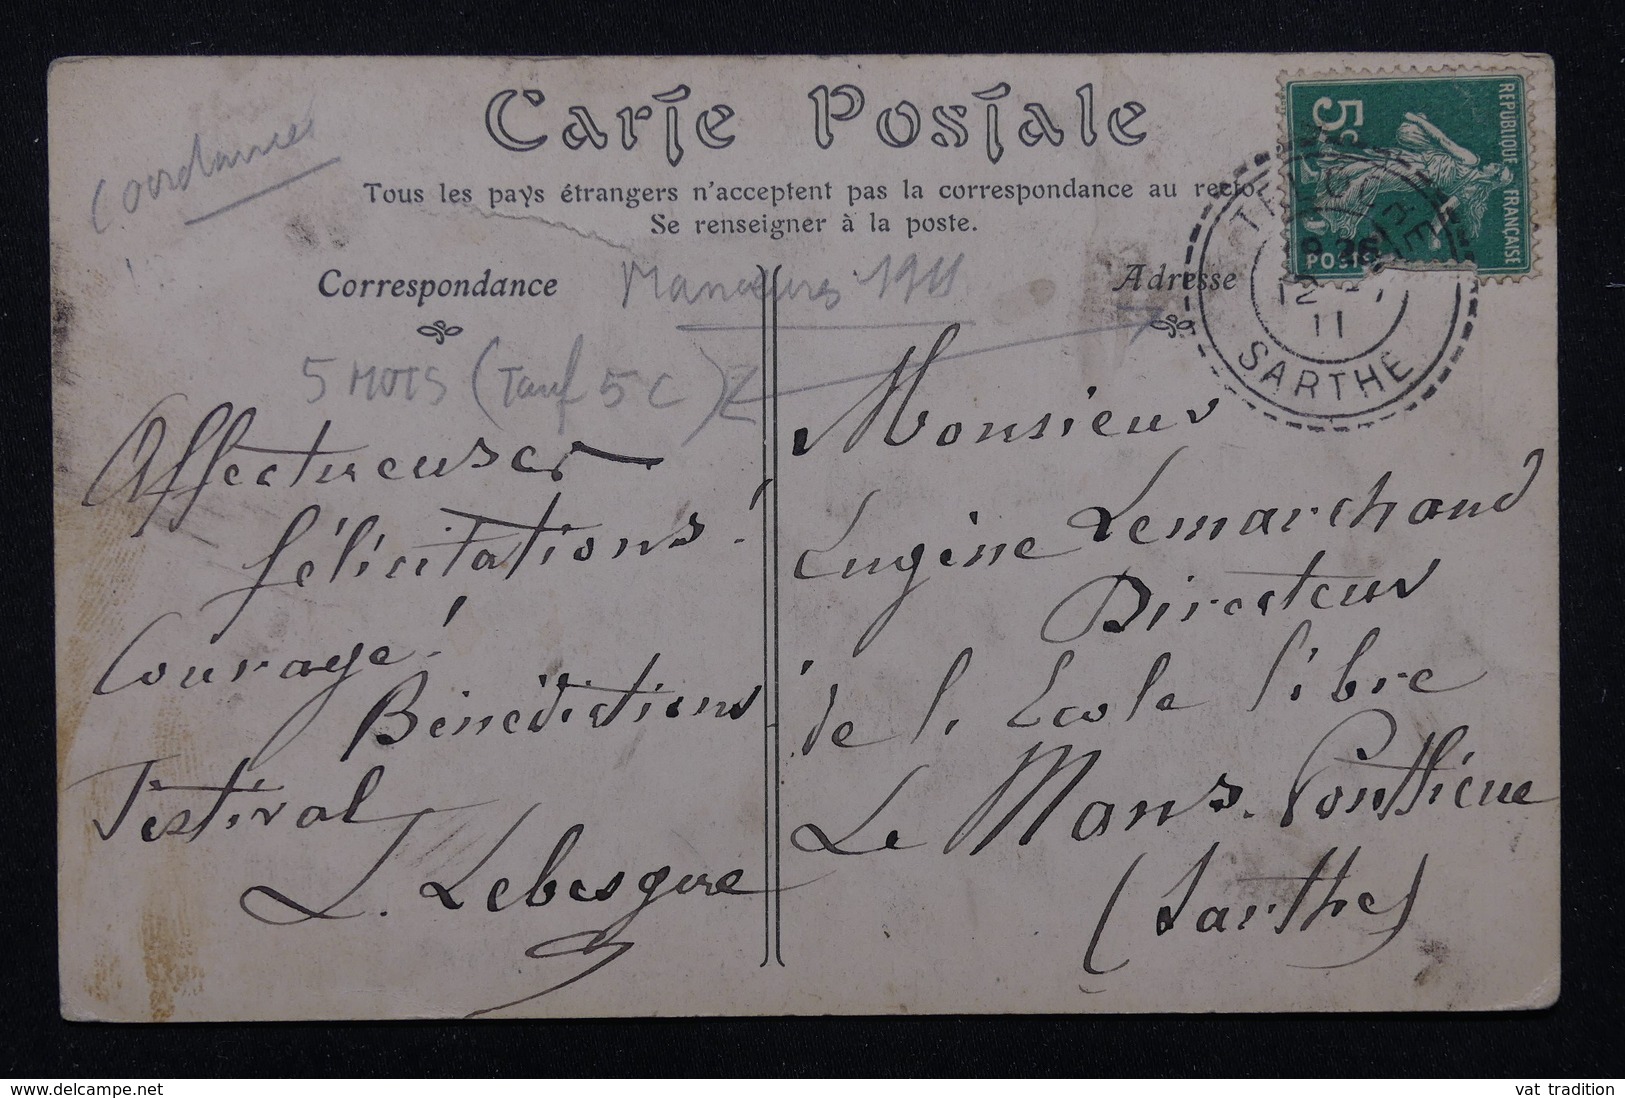 Carte Postale
Tous les pays étrangers n'acceptent pas la correspondance au recto.
Se renseigner à la poste.
Correspondance
Manoeuvres 1911
Adresse
5 MOTS (Tarif 5 C)
Affectueuses
félicitations!
Courage!
Bénédictions
Festival
L. Lebesgue
Monsieur
Eugène Lemarchand
Directeur
de l'Ecole libre
Le Mans-Ponthieue
(Sarthe)
5c
REPUBLIQUE FRANÇAISE
POSTES
12
11
SARTHE
www.delcampe.net
vat_tradition